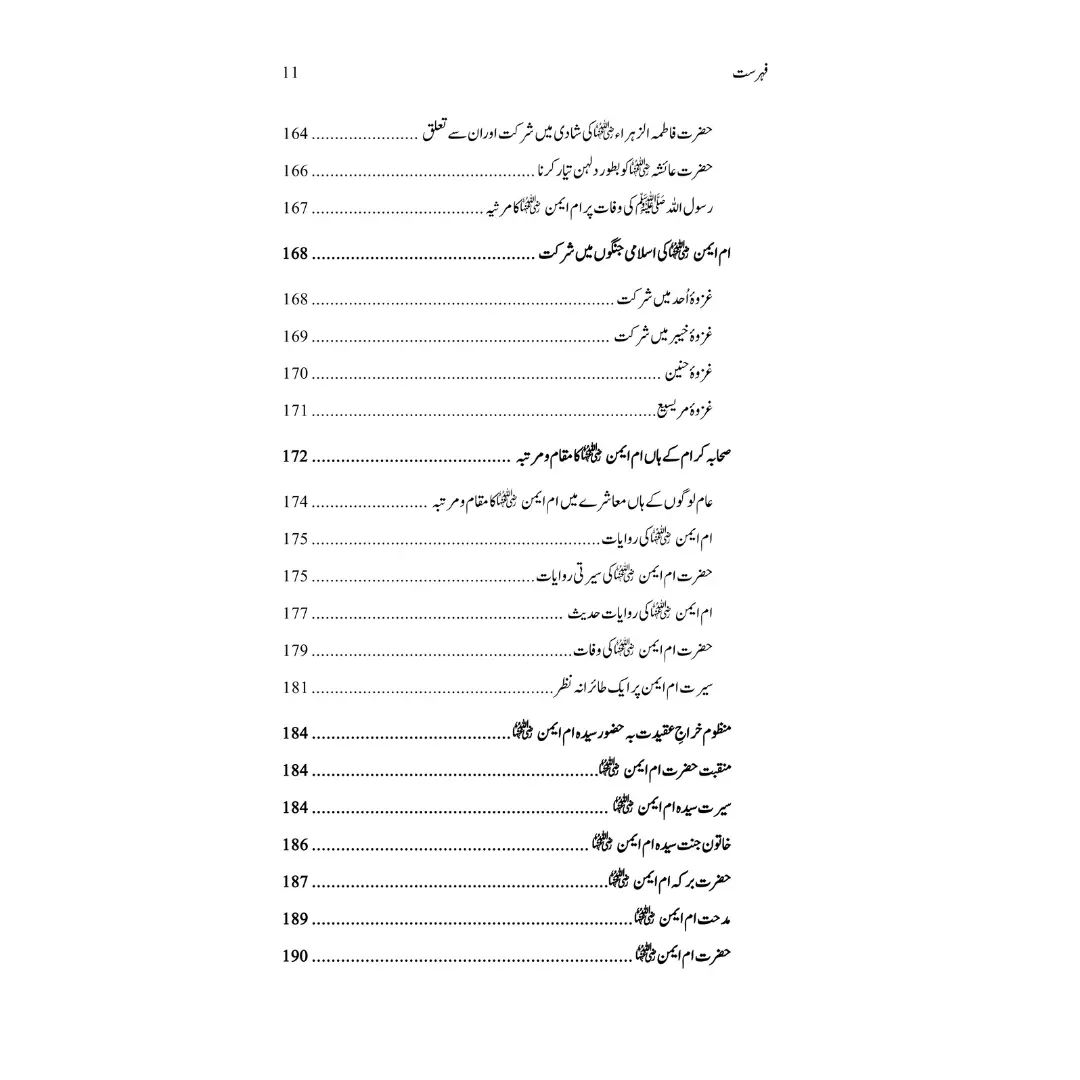 فہرست 11
حضرت فاطمہ الزہراء رضی اللہ عنہا کی شادی میں شرکت اور ان سے تعلق ...................... 164
حضرت عائشہ رضی اللہ عنہا کو بطور دلہن تیار کرنا ............................................... 166
رسول اللہ ﷺ کی وفات پر ام ایمن رضی اللہ عنہا کا مرثیہ .................................... 167
ام ایمن رضی اللہ عنہا کی اسلامی جنگوں میں شرکت .............................................. 168
غزوۂ اُحد میں شرکت ............................................................... 168
غزوۂ خیبر میں شرکت .............................................................. 169
غزوۂ حنین ......................................................................... 170
غزوۂ مریسیع........................................................................ 171
صحابہ کرام کے ہاں ام ایمن رضی اللہ عنہا کا مقام و مرتبہ ......................................... 172
عام لوگوں کے ہاں معاشرے میں ام ایمن رضی اللہ عنہا کا مقام و مرتبہ ........................ 174
ام ایمن رضی اللہ عنہا کی روایات............................................................ 175
حضرت ام ایمن رضی اللہ عنہا کی سیرتی روایات............................................... 175
ام ایمن رضی اللہ عنہا کی روایات حدیث .................................................... 177
حضرت ام ایمن رضی اللہ عنہا کی وفات...................................................... 179
سیرت ام ایمن پر ایک طائرانہ نظر................................................... 181
منظوم خراجِ عقیدت بہ حضور سیدہ ام ایمن رضی اللہ عنہا......................................... 184
منقبت حضرت ام ایمن رضی اللہ عنہا........................................................... 184
سیرت سیدہ ام ایمن رضی اللہ عنہا ............................................................. 184
خاتون جنت سیدہ ام ایمن رضی اللہ عنہا ......................................................... 186
حضرت برکہ ام ایمن رضی اللہ عنہا............................................................. 187
مدحت ام ایمن رضی اللہ عنہا.................................................................. 189
حضرت ام ایمن رضی اللہ عنہا .................................................................. 190